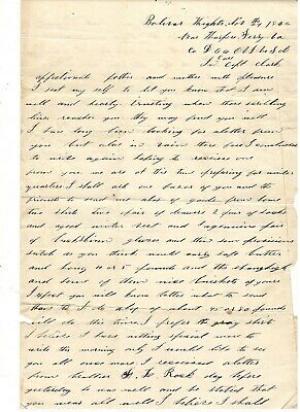 Bolivar Heights, Nov 24 1862
Near Harpers Ferry, Va
Co D 66 O V I U S A
In Care Capt Clark
affectionate father and mother with pleasure
I set my self to let you know that I am
well and hearty trusting when those scribling
lines reaches you they may find you well
I have long been looking for a letter from
you but alas in vain therefore I concluded
to write again hoping to receive one
from you we are at this time preparing for winter
quarters I shall ask one favor of you and the
friends to send me a box of goods from home
two shirts two pair of drawers 2 pair of socks
and a good winter vest and
of buckskin gloves and then some provisions
such as you think would carry safe butter
and honey 10 or 5 pounds and the
and some of them nice of yours
I expect you will know better what to send
than I do a box of about 20 or 30 pounds
will do this time I prefer the gray shirt
I believe I have nothing special more to
write this morning only I would like to see
you all once more I received a letter
from brother day before
yesterday he was well and he stated that
you were all well I believe I shall